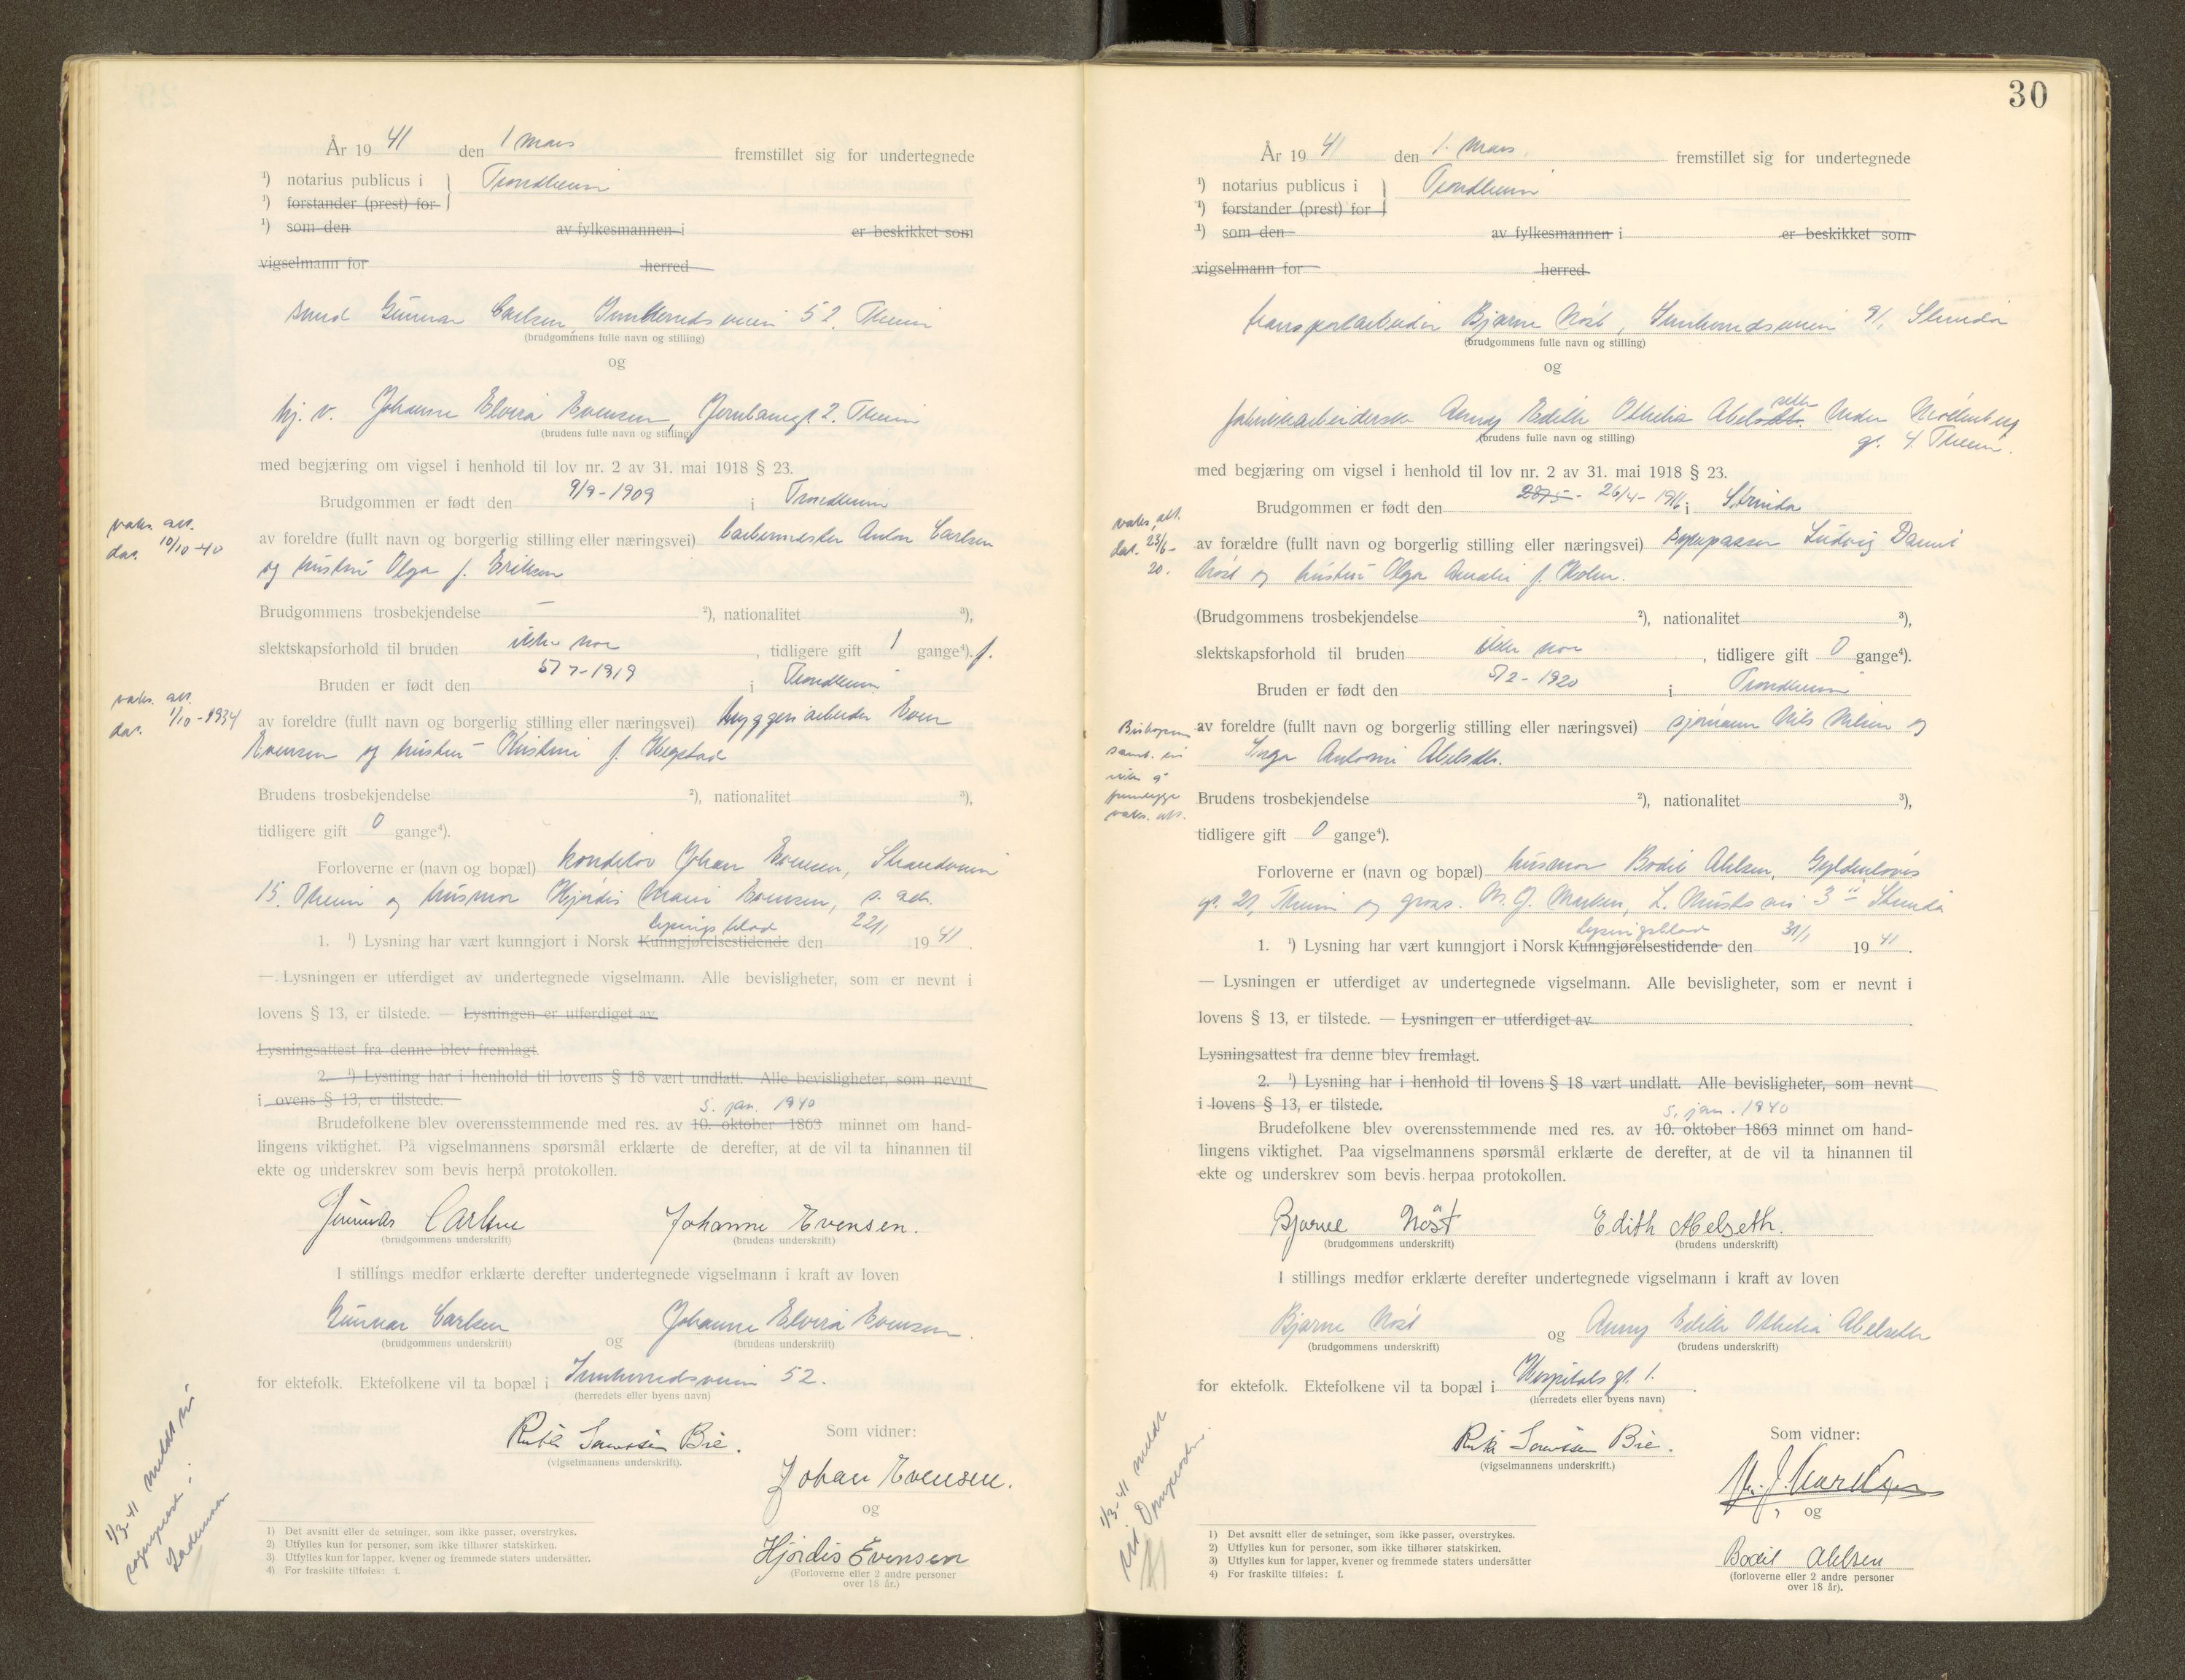 År 19 41 den 1 mars fremstillet sig for undertegnede
¹) notarius publicus i } Trondheim
¹) forstander (prest) for
¹) som den av fylkesmannen i er beskikket som
vigselmann for herred
smed Gunnar Carlsen, Innherredsveien 52, Theim
(brudgommens fulle navn og stilling)
og
hj. v. Johanne Elvira Evensen, Jernbanegt 2. Theim
(brudens fulle navn og stilling)
med begjæring om vigsel i henhold til lov nr. 2 av 31. mai 1918 § 23.
Brudgommen er født den 9/9-1909 i Trondheim
vaks. att.
dat. 10/10-40
av foreldre (fullt navn og borgerlig stilling eller næringsvei) barbermester Anton Carlsen
og hustru Olga f. Eriksen
Brudgommens trosbekjendelse — ²), nationalitet ³),
slektskapsforhold til bruden ikke noe, tidligere gift 1 gange⁴). f.
Bruden er født den 5/7-1919 i Trondheim
vaks. att.
dat. 1/10-1934
av foreldre (fullt navn og borgerlig stilling eller næringsvei) bryggeriarbeider Even
Evensen og hustru Kristine f. Hegstad
Brudens trosbekjendelse ²), nationalitet ³),
tidligere gift 0 gange⁴).
Forloverne er (navn og bopæl) konditor Johan Evensen, Strandveien
15, Theim og husmor Hjørdis Marie Evensen, s. adr.
Lysningsblad
1. ¹) Lysning har vært kunngjort i Norsk Kunngjørelsestidende den 22/1 19 41.
—. Lysningen er utferdiget av undertegnede vigselmann. Alle bevisligheter, som er nevnt i
lovens § 13, er tilstede. — Lysningen er utferdiget av
Lysningsattest fra denne blev fremlagt.
2. ¹) Lysning har i henhold til lovens § 18 vært undlatt. Alle bevisligheter, som nevnt
i ovens § 13, er tilstede.
5. jan. 1940
Brudefolkene blev overensstemmende med res. av 10. oktober 1863 minnet om hand-
lingens viktighet. På vigselmannens spørsmål erklærte de derefter, at de vil ta hinannen til
ekte og underskrev som bevis herpå protokollen.
Gunnar Carlsen Johanne Evensen.
(brudgommens underskrift) (brudens underskrift)
I stillings medfør erklærte derefter undertegnede vigselmann i kraft av loven
Gunnar Carlsen og Johanne Elvira Evensen.
(brudgommens underskrift) (brudens underskrift)
for ektefolk. Ektefolkene vil ta bopæl i Innherredsveien 52.
(herredets eller byens navn)
Som vidner:
(vigselmannens underskrift).
Johan Evensen.
og
Hjørdis Evensen
(Forloverne eller 2 andre personer
over 18 år.)
1/3-41 meldt til
sogneprest i
Lademoen
1) Det avsnitt eller de setninger, som ikke passer, overstrykes.
2) Utfylles kun for personer, som ikke tilhører statskirken.
3) Utfylles kun for lapper, kvener og fremmede staters undersåtter.
4) For fraskilte tilføies: f.
30
År 19 41 den 1. mars. fremstillet sig for undertegnede
¹) notarius publicus i } Trondheim
¹) forstander (prest) for
¹) som den av fylkesmannen i er beskikket som
vigselmann for herred
transportarbeider Bjarne Nøst, Innherredsveien 91, Strinda
(brudgommens fulle navn og stilling)
og
fabrikkarbeiderske Anny Edith Othelia Abelseth Nedre Møllenberg
gt. 4 Theim.
(brudens fulle navn og stilling)
med begjæring om vigsel i henhold til lov nr. 2 av 31. mai 1918 § 23.
Brudgommen er født den 26/4-1916 i Strinda
vaks. att.
dat. 23/6-
20.
av forældre (fullt navn og borgerlig stilling eller næringsvei) Ludvig Daniel
Nøst og hustru Olga Amalie f. Holm.
(Brudgommens trosbekjendelse ²), nationalitet ³),
slektskapsforhold til bruden ikke noe, tidligere gift 0 gange⁴).
Bruden er født den 5/2-1920 i Trondheim
av foreldre (fullt navn og borgerlig stilling eller næringsvei) sjømann Nils Nilsen og
Inga Antonie Abelseth.
Bispens
samt. til
ikke å
fremlegge
vaks. att.
Brudens trosbekjendelse ²), nationalitet ³),
tidligere gift 0 gange⁴).
Forloverne er (navn og bopæl) husmor Bodil Ahlsen, Gyldenløves
gt. 21, Theim og gross. M. J. 3 Strinda
Lysningsblad
1. ¹) Lysning har vært kunngjort i Norsk Kunngjørelsestidende den 31/1 19 41.
— Lysningen er utferdiget av undertegnede vigselmann. Alle bevisligheter, som er nevnt i
lovens § 13, er tilstede. — Lysningen er utferdiget av
Lysningsattest fra denne blev fremlagt.
2. ¹) Lysning har i henhold til lovens § 18 vært undlatt. Alle bevisligheter, som nevnt
i lovens § 13, er tilstede.
5. jan. 1940
Brudefolkene blev overensstemmende med res. av 10. oktober 1863 minnet om hand-
lingens viktighet. Paa vigselmannens spørsmål erklærte de derefter, at de vil ta hinannen til
ekte og underskrev som bevis herpaa protokollen.
Bjarne Nøst Edith Abelseth.
(brudgommens underskrift) (brudens underskrift)
I stillings medfør erklærte derefter undertegnede vigselmann i kraft av loven
Bjarne Nøst og Anny Edith Othelia Abelseth
(brudgommens underskrift) (brudens underskrift)
for ektefolk. Ektefolkene vil ta bopæl i Hospitals gt. 1.
(herredets eller byens navn)
Som vidner:
(vigselmannens underskrift.)
og
Bodil Ahlsen
(forloverne eller 2 andre personer
over 18 år).
1/3-41 meldt
1) Det avsnitt eller de setninger, som ikke passer, overstrykes.
2) Utfylles kun for personer, som ikke tilhører statskirken.
3) Utfylles kun for lapper, kvener og fremmede staters undersåtter
4) For fraskilte tilføies: f.